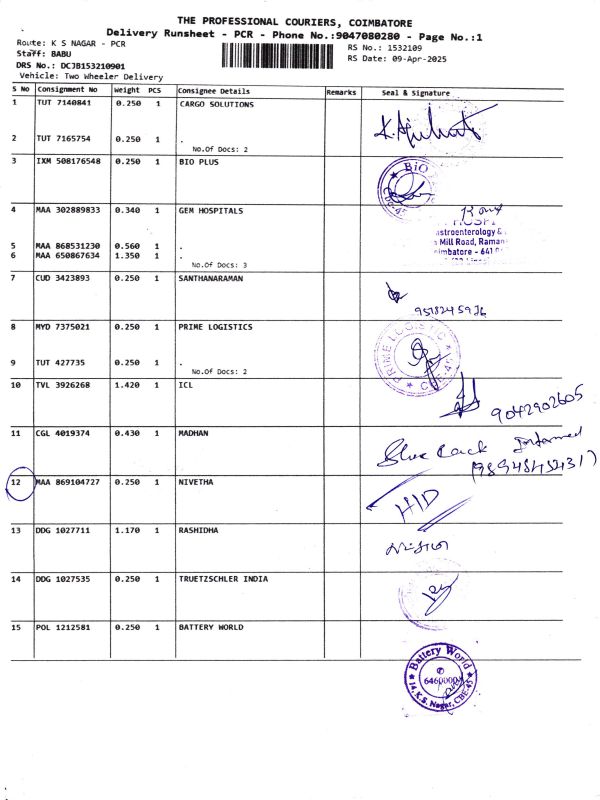 THE PROFESSIONAL COURIERS, COIMBATORE
Delivery Runsheet - PCR - Phone No.:9047080280 - Page No.:1
Route: K S NAGAR - PCR
RS No.: 1532109
Staff: BABU
RS Date: 09-Apr-2025
DRS No.: DCJB153210901
Vehicle: Two Wheeler Delivery
S No Consignment No Weight PCS Consignee Details Remarks Seal & Signature
1 TUT 7140841 0.250 1 CARGO SOLUTIONS
2 TUT 7165754 0.250 1 .
No.Of Docs: 2
3 IXM 508176548 0.250 1 BIO PLUS
BIO
4 MAA 302889833 0.340 1 GEM HOSPITALS
5 MAA 868531230 0.560 1 .
6 MAA 650867634 1.350 1 .
No.Of Docs: 3
stroenterology &
Mill Road, Raman
imbatore - 641
7 CUD 3423893 0.250 1 SANTHANARAMAN
8 MYD 7375021 0.250 1 PRIME LOGISTICS
PRIME LOGISTIC
CBE-45
9 TUT 427735 0.250 1 .
No.Of Docs: 2
10 TVL 3926268 1.420 1 ICL
9042902605
11 CGL 4019374 0.430 1 MADHAN
Informed
12 MAA 869104727 0.250 1 NIVETHA
HID
13 DDG 1027711 1.170 1 RASHIDHA
14 DDG 1027535 0.250 1 TRUETZSCHLER INDIA
15 POL 1212581 0.250 1 BATTERY WORLD
Battery World
14, K.S. Nagar, CBE-45